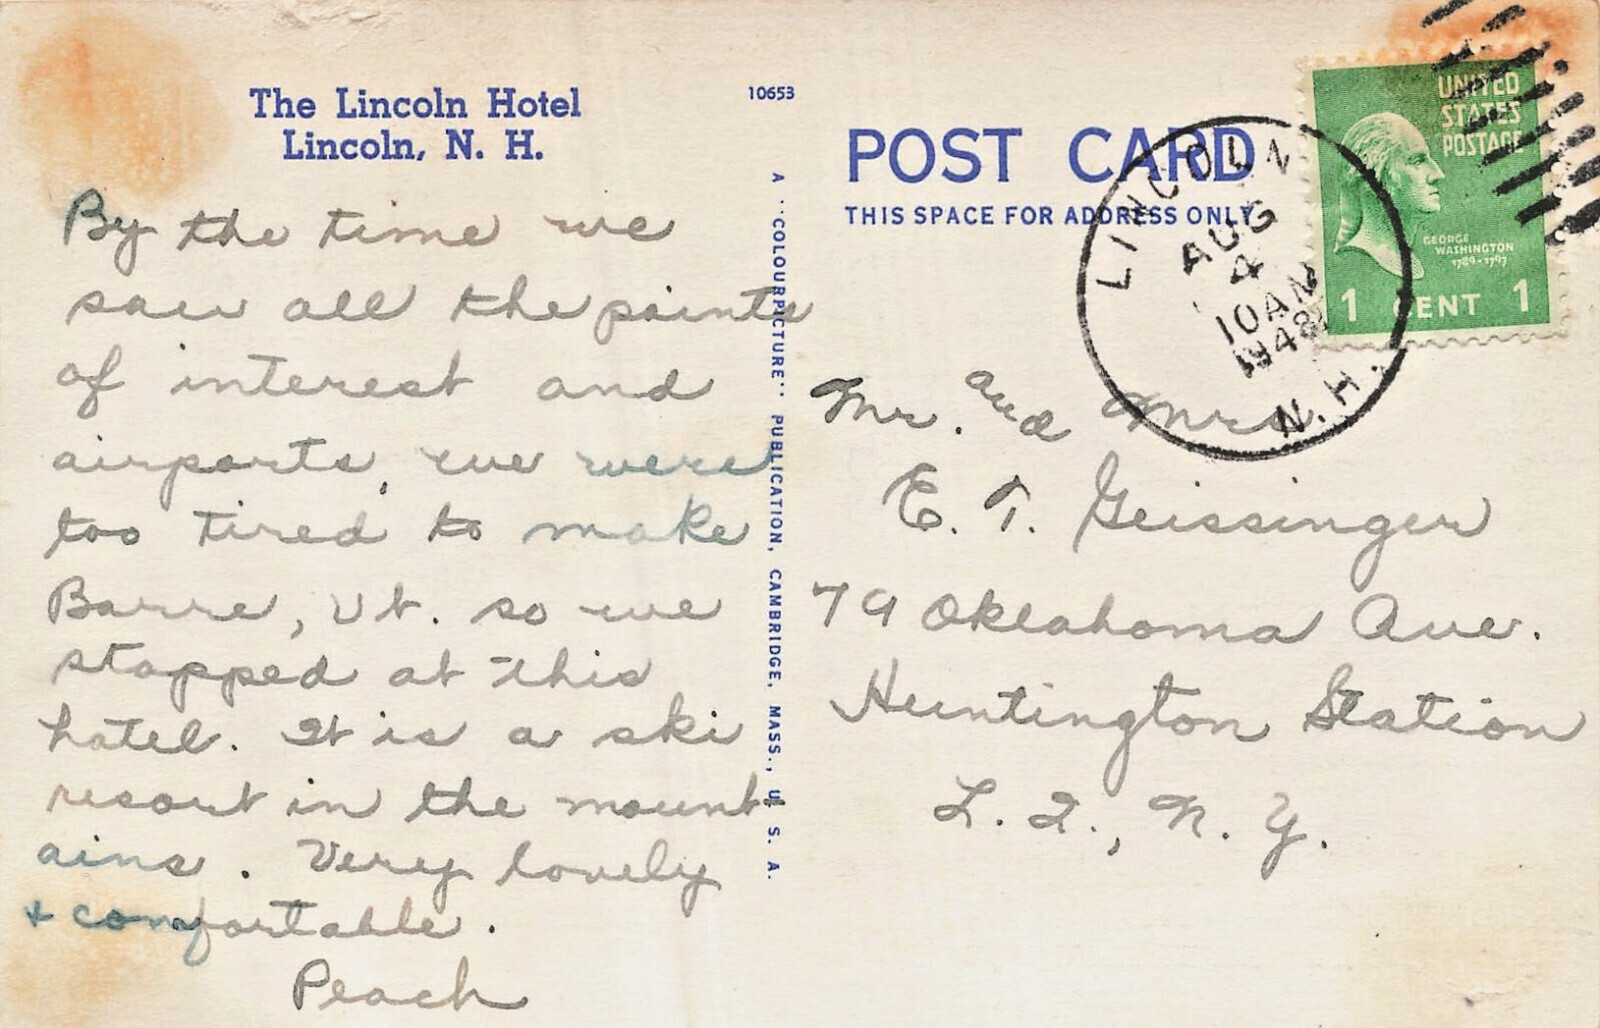 The Lincoln Hotel
Lincoln, N. H.
By the time we
saw all the points
of interest and
airports, we were
too tired to make
Barre, Vt. so we
stopped at this
hotel. It is a ski
resort in the mount
ains. Very lovely
+ comfortable.
Peach
10653
A "COLOURPICTURE" PUBLICATION, CAMBRIDGE, MASS., U. S. A.
POST CARD
THIS SPACE FOR ADDRESS ONLY
LINCOLN
AUG
4
10 AM
1948
N.H.
UNITED
STATES
POSTAGE
GEORGE
WASHINGTON
1789-1797
1 CENT 1
Mr. and Mrs
E. T. Geissinger
79 Oklahoma Ave.
Huntington Station
L. I., N. Y.